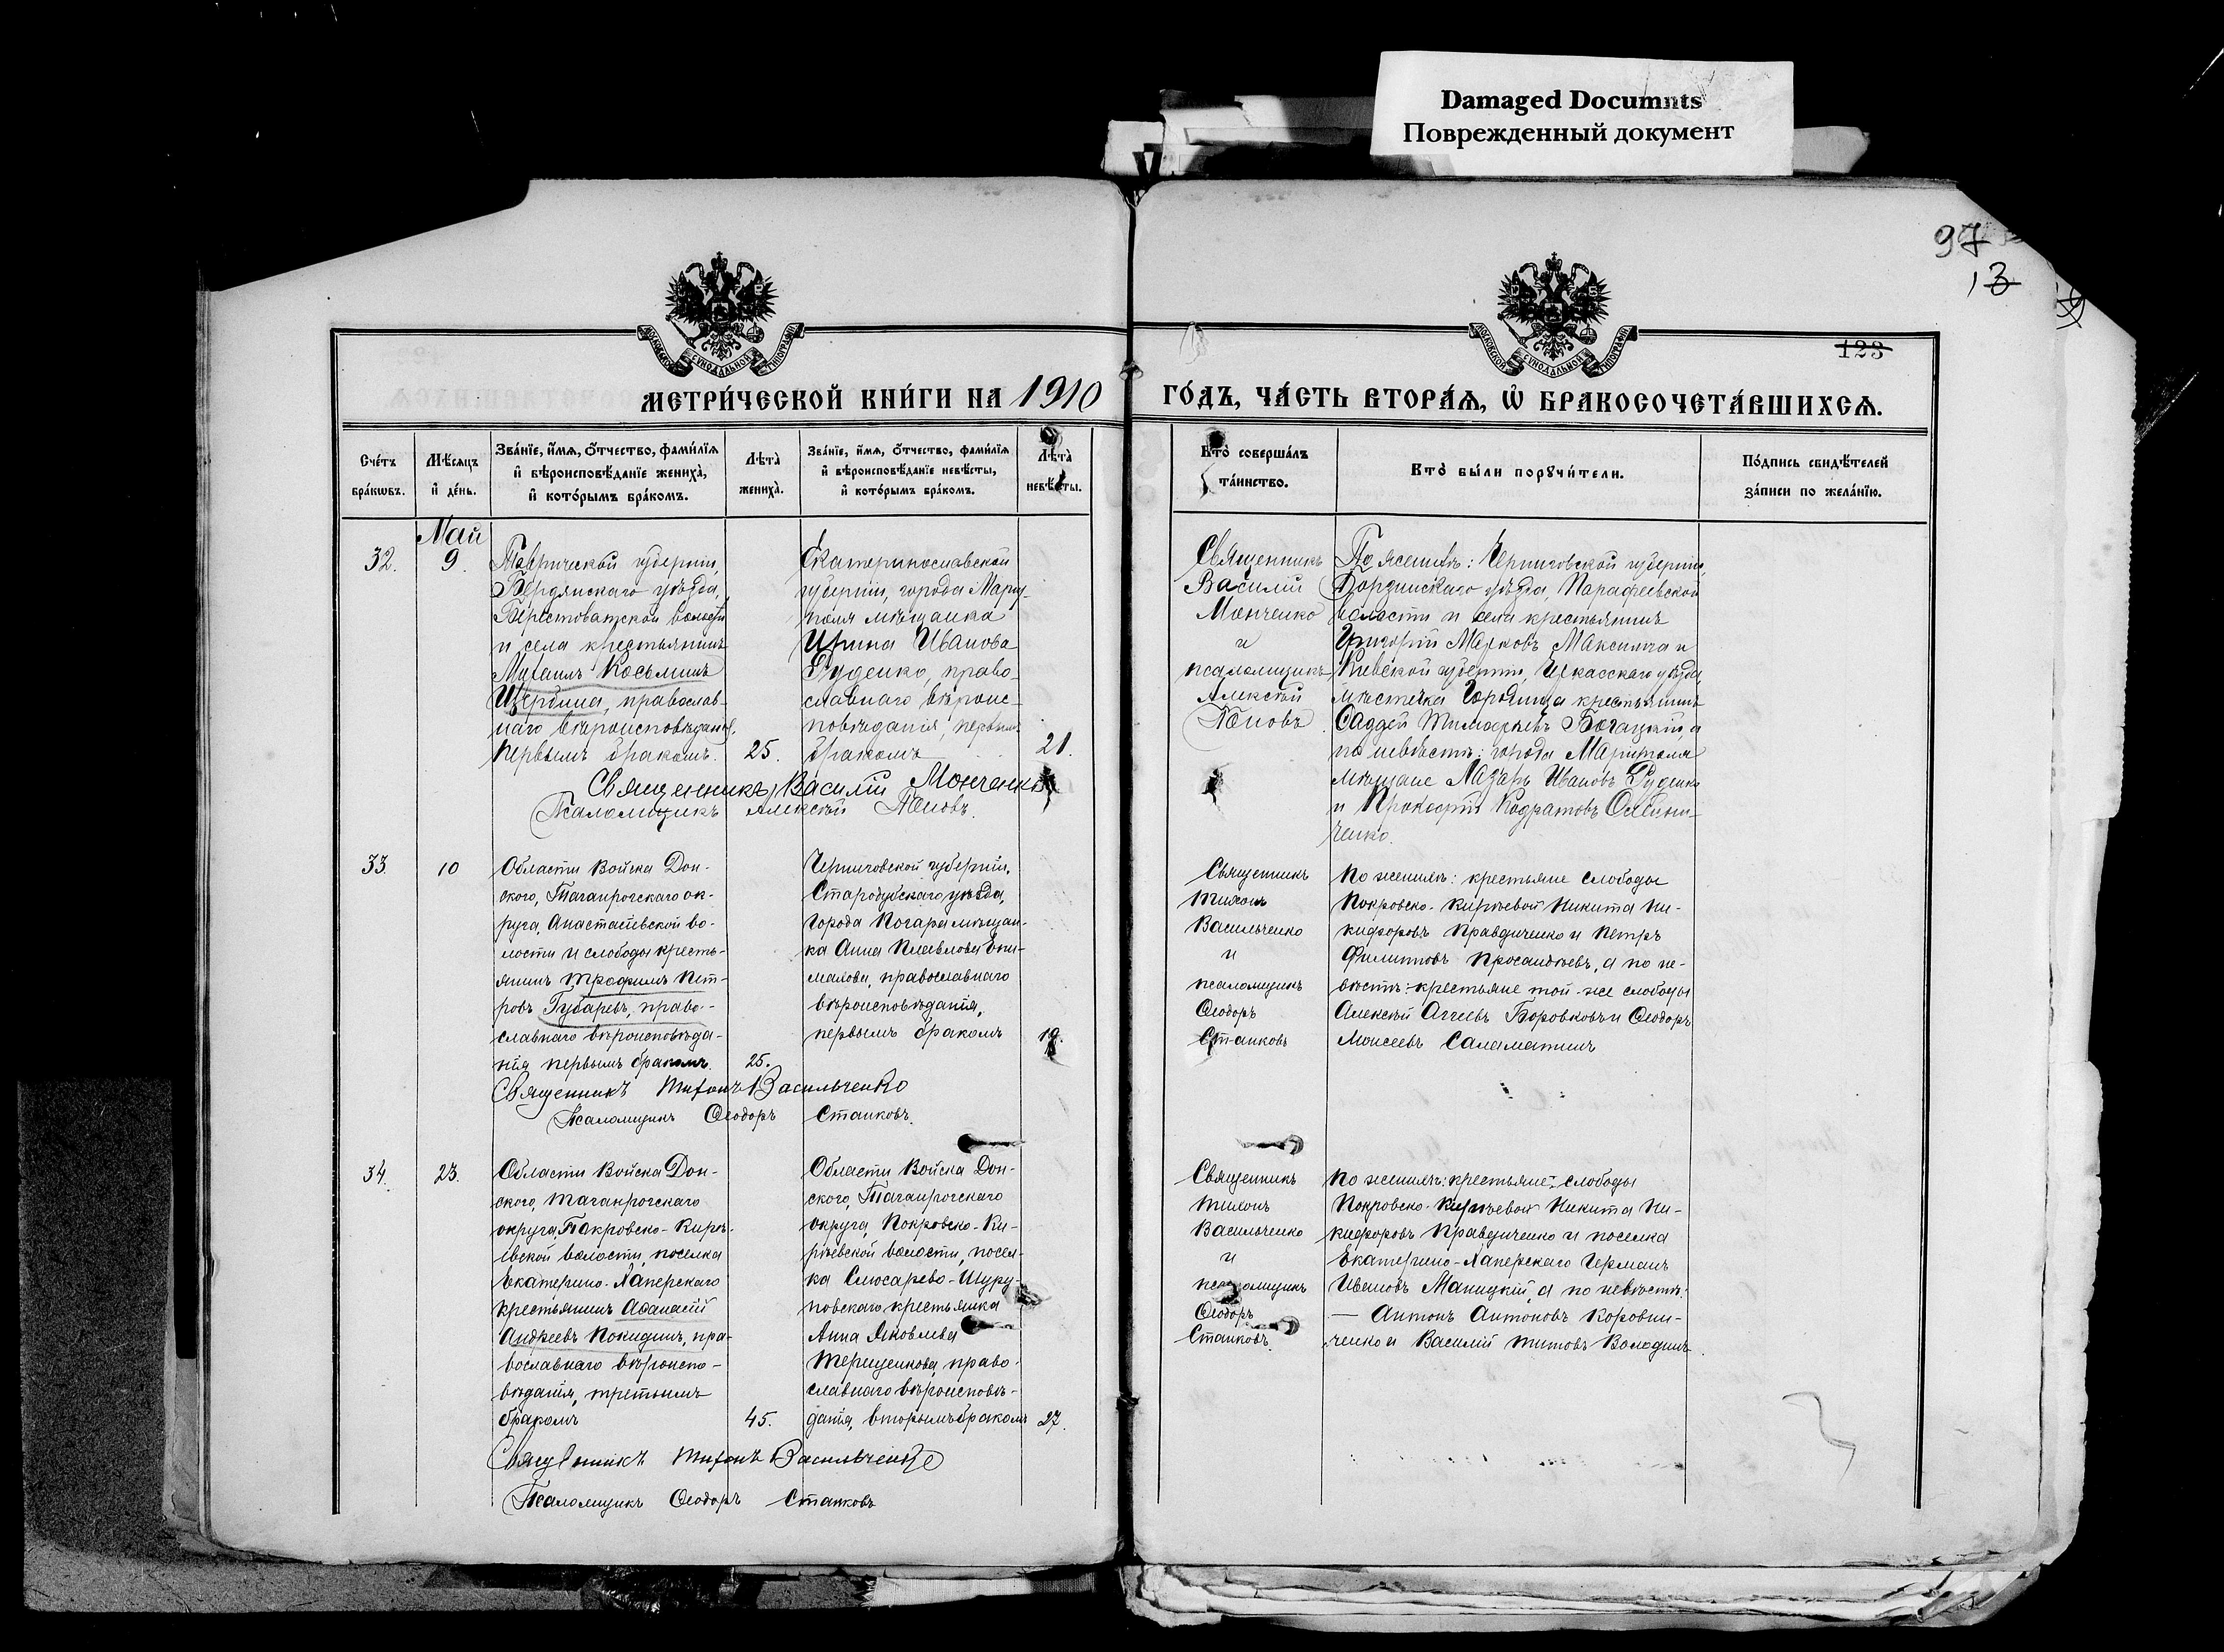 Damaged Documnts
Поврежденный документ
97
13
123
МОСКОВСКОЙ СѴНОДАЛЬНОЙ ТИПОГРАФІИ
МОСКОВСКОЙ СѴНОДАЛЬНОЙ ТИПОГРАФІИ
МЕТРИ́ЧЕСКОЙ КНИ́ГИ НА 1910
ГО́ДЪ, ЧА́СТЬ ВТОРА́Я, Ѡ҆ БРАКОСОЧЕТА́ВШИХСЯ.
Сче́тъ
бра́кѡвъ.
Мѣ́сяцъ
и҆ де́нь.
Зва́нїе, и҆́мя, ѻ҆́тчество, фами́лїя
и҆ вѣроисповѣ́данїе жениха̀,
и҆ кото́рымъ бра́комъ.
Лѣ́та
жениха̀.
Зва́нїе, и҆́мя, ѻ҆́тчество, фами́лїя
и҆ вѣроисповѣ́данїе невѣ́сты,
и҆ кото́рымъ бра́комъ.
Лѣ́та
невѣ́сты.
Кто̀ соверша́лъ
та́инство.
Кто̀ бы́ли порꙋчи́тели.
По́дпись свидѣ́телей
за́писи по жела́нїю.
Май
32.
9.
Таврической губерніи,
Бердянскаго уѣзда,
Берестоватской волости
и села крестьянинъ
Михаилъ Косьминъ
Щербина, православ-
наго вѣроисповѣданія.
первымъ бракомъ.
25.
Екатеринославской
губерніи, города Мариу-
поля мѣщанка
Ирина Иванова
Руденко, право-
славнаго вѣроис-
повѣданія, первымъ
бракомъ
21.
Священникъ
Василій
Мончѣнко
и
псаломщикъ
Алексѣй
Поповъ
По женихѣ: Черниговской губерніи,
Борзинскаго уѣзда, Парафеевской
волости и села крестьянинъ
Григорій Марковъ Максимча и
Кіевской губерніи, Черкасскаго уѣзда
мѣстечка Городища крестьянинъ
Фаддей Тимофеевъ Богацкій, а
по невѣстѣ: города Маріуполя
мѣщане Лазарь Ивановъ Руденко
и Прокофій Кодратовъ Олейни-
ченко.
Священникъ Василій Мончѣнко
Псаломщикъ Алексѣй Поповъ.
33.
10
Области Войска Дон-
ского, Таганрогскаго ок-
руга, Анастасіевской во-
лости и слободы кресть-
янинъ Трофимъ Пет-
ровъ Губаревъ, право-
славнаго вѣроисповѣда-
нія первымъ бракомъ.
25.
Черниговской губерніи,
Стародубскаго уѣзда,
города Погара мѣщан-
ка Анна Павлова Ени-
малова, православнаго
вѣроисповѣданія,
первымъ бракомъ
19.
Священникъ
Тихонъ
Васильченко
и
псаломщикъ
Ѳеодоръ
Станковъ
По женихѣ: крестьяне слободы
Покровско-Кирѣевой Никита Ни-
кифоровъ Правдиченко и Петръ
Филипповъ Просандѣевъ, а по не-
вѣстѣ: крестьяне той-же слободы
Алексѣй Аггеевъ Боровковъ и Ѳеодоръ
Моисеевъ Саламатинъ
Священникъ Тихонъ Васильченко
Псаломщикъ Ѳеодоръ Станковъ.
34.
23.
Области Войска Дон-
ского, Таганрогскаго
округа, Покровско-Кирѣ-
евской волости, поселка
Екатерино-Хаперскаго
крестьянинъ Аѳанасій
Андреевъ Покидинъ, пра-
вославнаго вѣроиспо-
вѣданія, третьимъ
бракомъ
45.
Области Войска Дон-
ского, Таганрогскаго
округа, Покровско-Ки-
рѣевской волости, посел-
ка Слюсарево-Шуру-
повскаго крестьянка
Анна Яковлева
Терещенкова, право-
славнаго вѣроисповѣ-
данія, вторымъ бракомъ
27.
Священникъ
Тихонъ
Васильченко
и
псаломщикъ
Ѳеодоръ
Станковъ.
По женихѣ: крестьяне: слободы
Покровско-Кирѣевой Никита Ни-
кифоровъ Правдиченко и поселка
Екатерино-Хаперскаго Германъ
Ивановъ Маницкій, а по невѣстѣ:
— Антонъ Антоновъ Коровни-
ченко и Василій Титовъ Володинъ.
Священникъ Тихонъ Васильченко
Псаломщикъ Ѳеодоръ Станковъ